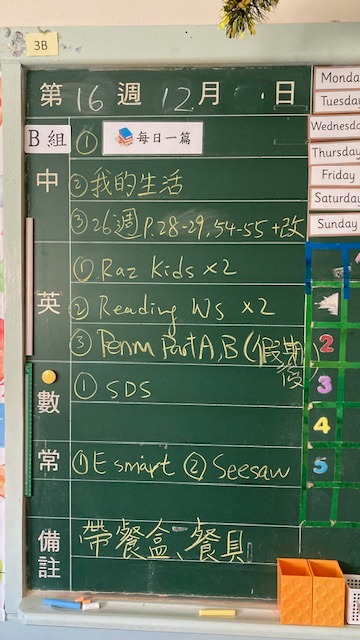 3B
第 16 週 12 月 日
B組 ① 每日一篇
中 ② 我的生活
③ 26週 P.28-29, 54-55 + 改
英 ① Raz Kids x2
② Reading Ws x2
③ Penm Part A, B (假期後
數 ① SDS
常 ① E smart ② Seesaw
備註 帶餐盒、餐具
Monday
Tuesday
Wednesday
Thursday
Friday
Saturday
Sunday
2
3
4
5